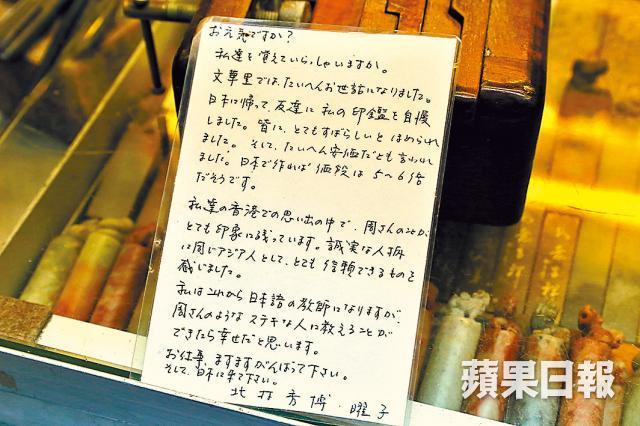 お元気ですか？
私達を覚えていらっしゃいますか。
文華里では、たいへんお世話になりました。
日本に帰って、友達に私の印鑑を自慢
しました。皆に、とてもすばらしいとほめられ
ました。そして、たいへん安価だとも言われ
ました。日本で作れば価段は5〜6倍
だそうです。
私達の香港での思い出の中で、周さんのことが、
とても印象に残っています。誠実な人柄
に同じアジア人として、とても信頼できるものを
感じました。
私はこれから日本語の教師になりますが、
周さんのようなステキな人に教えることが
できたら幸せだと思います。
お仕事、ますますがんばって下さい。
そして、日本に来て下さい。
北 秀博・曜子
蘋果日報